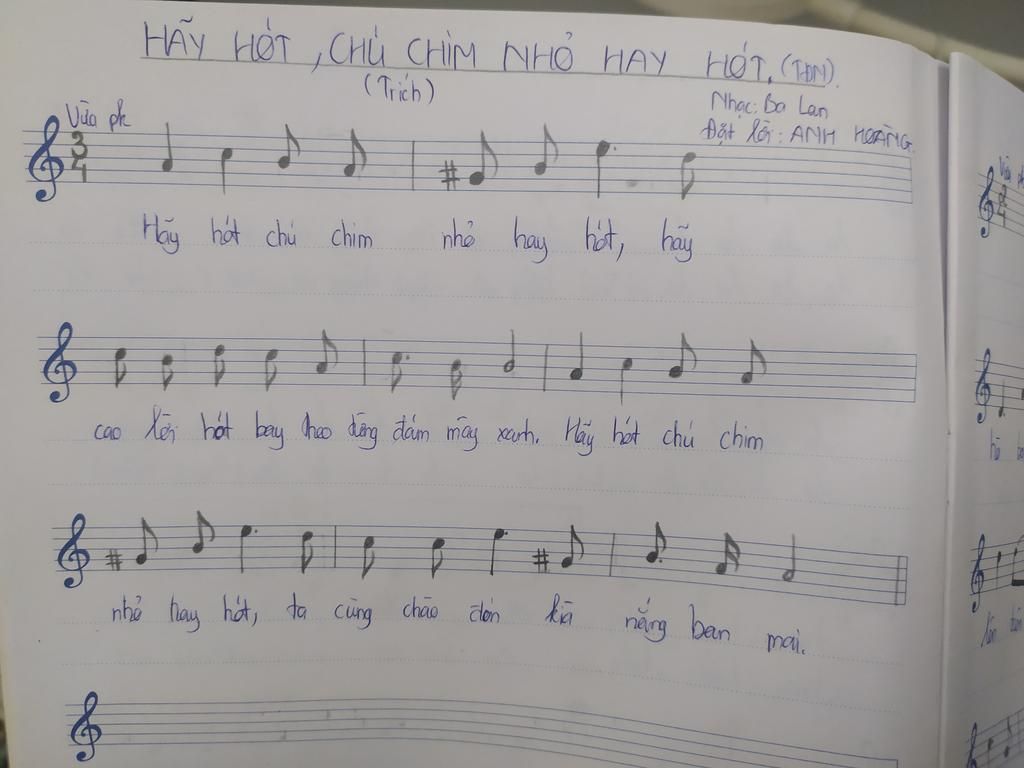 HÃY HÓT, CHÚ CHIM NHỎ HAY HÓT. (TĐN)
(Trích)
Vừa ph
Nhạc: Ba Lan
Đặt lời: ANH HOÀNG.
3
4
Hãy hót chú chim nhỏ hay hót, hãy
cao lời hót bay theo từng đám mây xanh. Hãy hót chú chim
nhỏ hay hót, ta cùng chào đón kìa nắng ban mai.